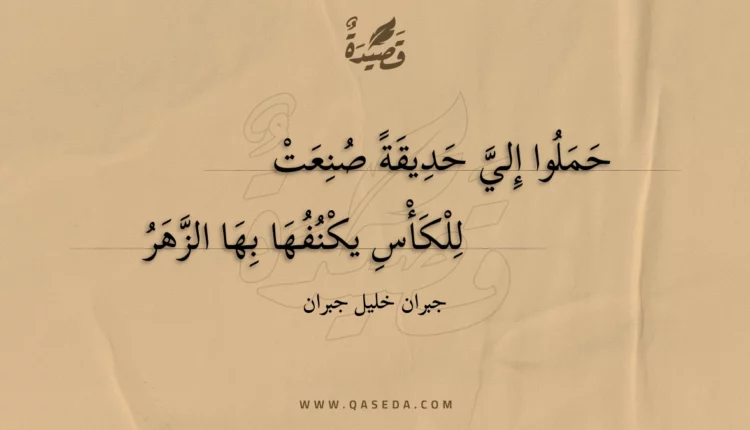 قَصِيدَةٌ
حَمَلُوا إِليَّ حَدِيقَةً صُنِعَتْ
لِلْكَأْسِ يكْنُفُهَا بِهَا الزَّهَرُ
جبران خليل جبران
WWW.QASEDA.COM